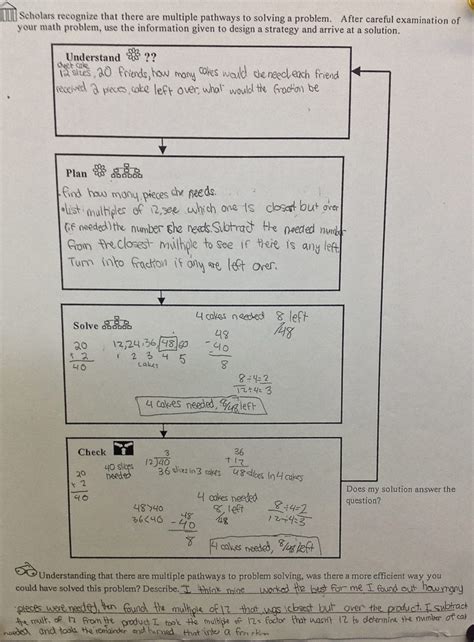 Scholars recognize that there are multiple pathways to solving a problem. After careful examination of
your math problem, use the information given to design a strategy and arrive at a solution.
Understand ??
12 slices, 20 friends, how many cakes would she need, each friend
received 2 pieces, cake left over, what would the fraction be
Plan
Find how many pieces she needs.
• List multiples of 12, see which one is closest but over
(if needed) the number she needs. Subtract the needed number
from the closest multiple to see if there is any left.
Turn into fraction if any are left over.
4 cakes needed 8 left
/48
Solve
20
x 2
40
12, 24, 36, 48, 60
1 2 3 4 5
cakes
48
- 40
8
8÷4=2
12÷4=3
4 cakes needed, 8/48 left
Check
20
x 2
40
40 slices
needed
3
12)40
36 slices in 3 cakes
36
+ 12
48 slices in 4 cakes
48>40
36<40
48
- 40
8
4 cakes needed
8 left
/48
8÷4=2
12÷4=3
4 cakes needed, 8/48 left
Does my solution answer the
question?
Understanding that there are multiple pathways to problem solving, was there a more efficient way you
could have solved this problem? Describe. I think mine worked the best for me I found out how many
pieces were needed, then found the multiple of 12 that was closest but over the product. I subtract
the mult. of 12 from the product I took the multiple of 12's factor that wasn't 12 to determine the number of cakes
needed, and took the remainder and turned that into a fraction